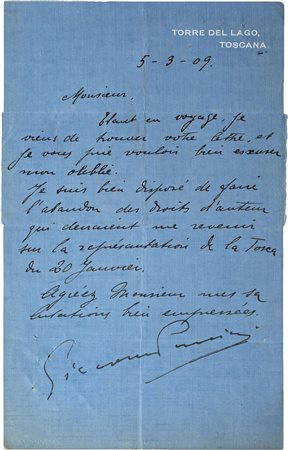 TORRE DEL LAGO,
TOSCANA
5-3-09.
Monsieur.
Etant en voyage, je
viens de trouver votre lettre, et
je vous prie vouloir bien excuser
mon oublie.
Je suis bien disposé de faire
l'abandon des droits d'auteur
qui devraient me revenir
sur la représentation de la Tosca
du 20 Janvier.
Agréez Monsieur mes sa
lutations bien empressées.
Giacomo Puccini